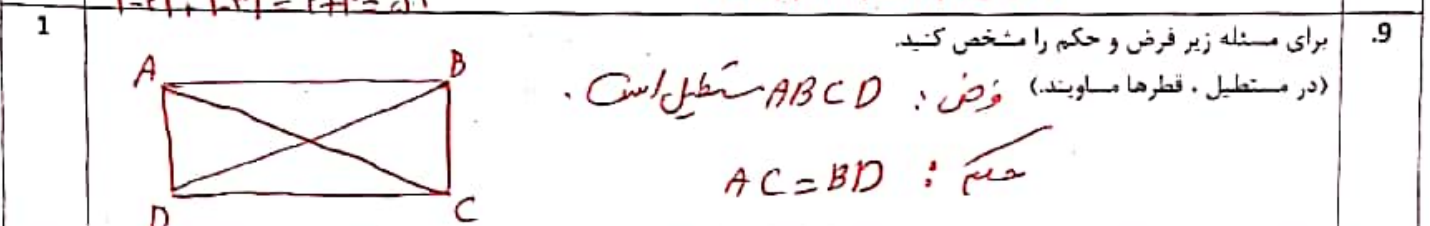 9.
برای مسئله زیر فرض و حکم را مشخص کنید.
(در مستطیل ، قطرها مساویند.)
فرض : ABCD مستطیل است .
حکم : AC=BD
A
B
D
C
1